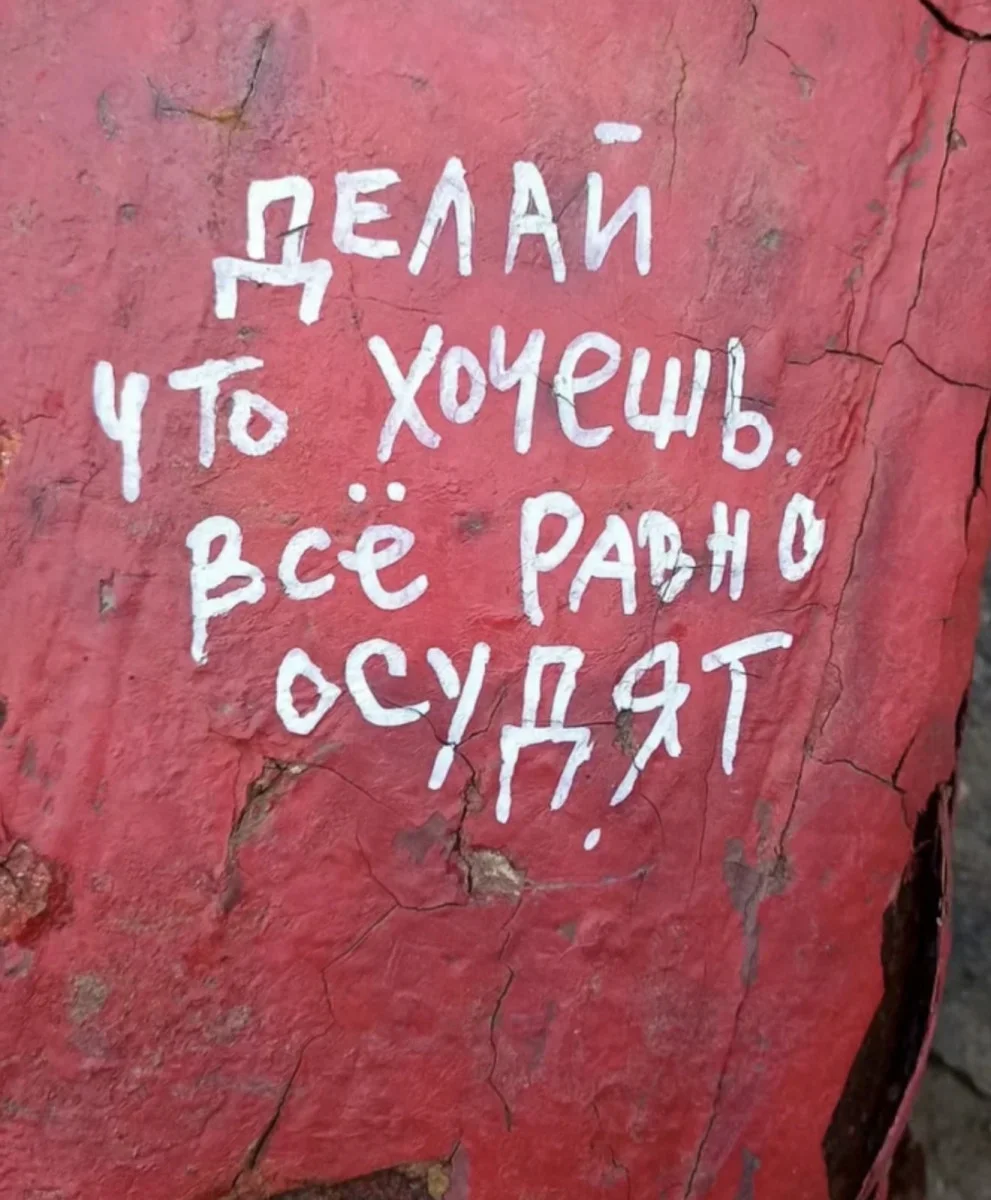 ДЕЛАЙ
ЧТО ХОЧЕШЬ.
ВСЁ РАВНО
ОСУДЯТ.